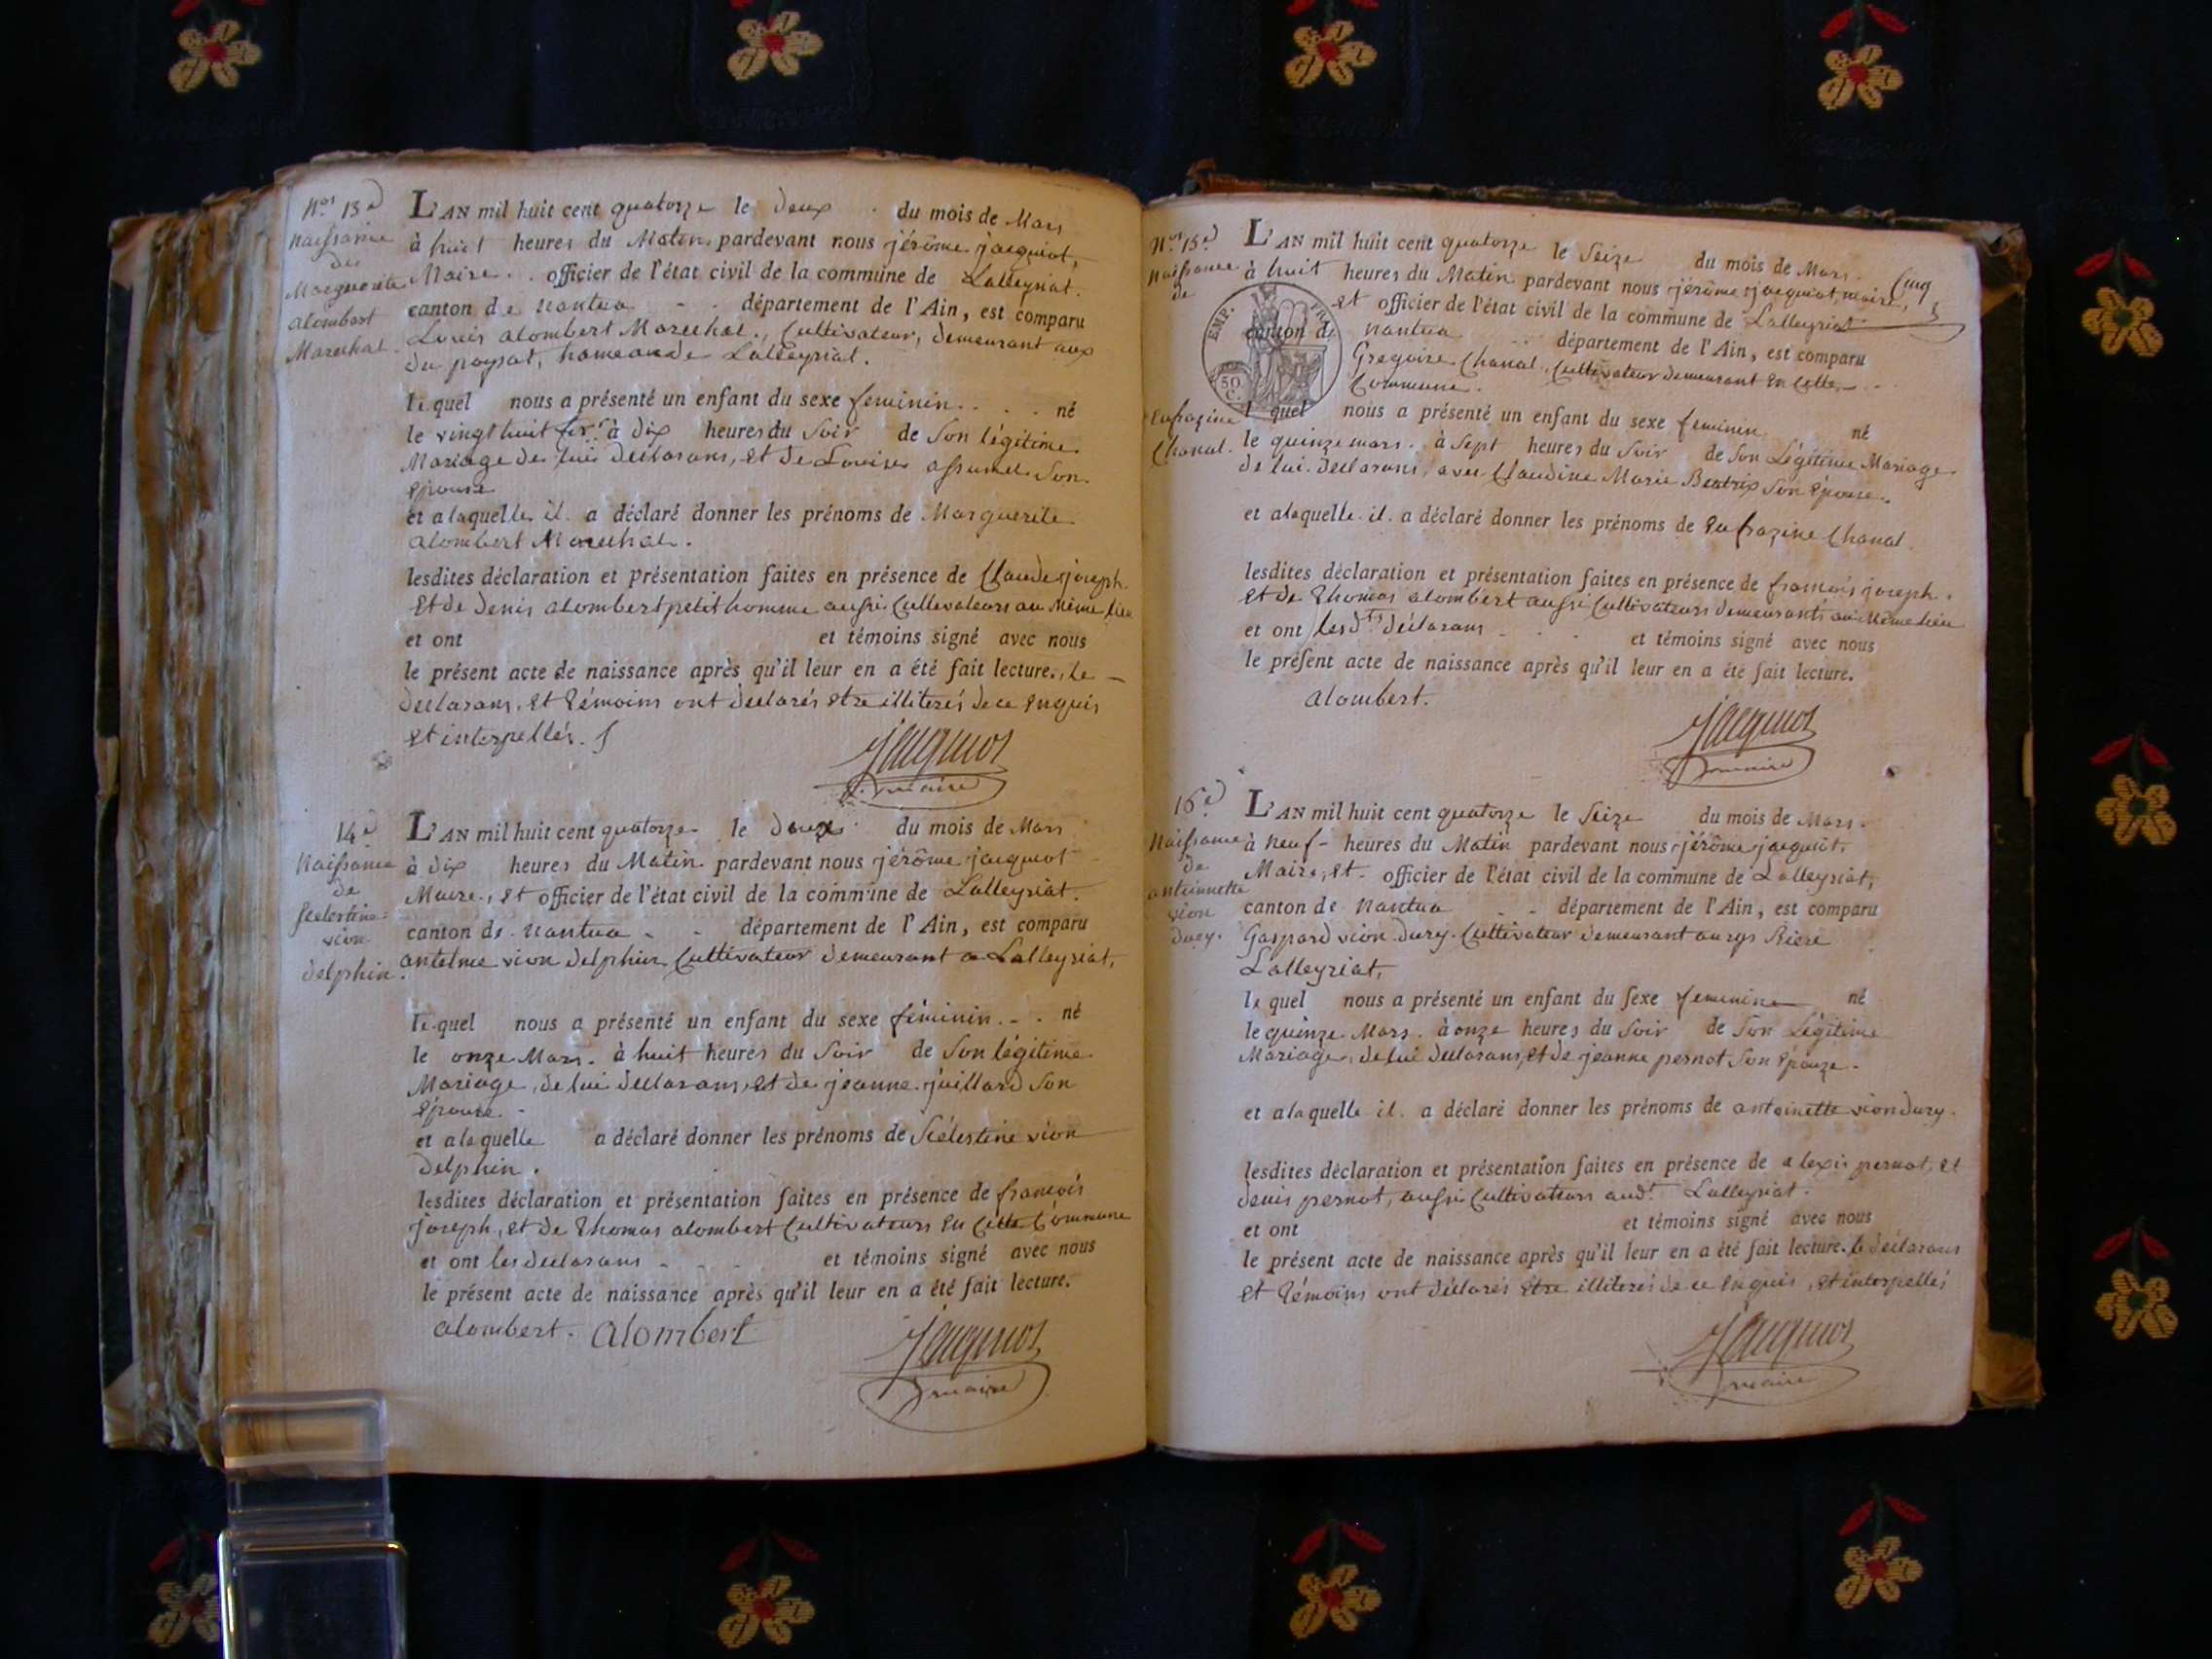 Nos 13e
naissance
de
Marguerite
alombert
Marechal.
L'AN mil huit cent quatorze le deux du mois de Mars
à huit heures du Matin pardevant nous jérôme jacquiot,
Maire officier de l'état civil de la commune de Lalleyriat.
canton de nantua département de l'Ain, est comparu
Louis alombert Marechal, Cultivateur, demeurant aux
du poysat, hameau de Lalleyriat.
le quel nous a présenté un enfant du sexe feminin né
le vingt huit fer. à dix heures du Soir de Son légitime
Mariage de lui declarans, et de Louise Son
épouse
et a laquelle il a déclaré donner les prénoms de Marguerite
alombert Marechal.
lesdites déclaration et présentation faites en présence de Claude joseph
Et de Denis alombert petit homme aussi Cultivateurs au Même lieu
et ont et témoins signé avec nous
le présent acte de naissance après qu'il leur en a été fait lecture. Le
declarans, et témoins ont declarés etre illiterés de ce Enquis
Et interpellés.
Jacquiot
maire
14e
Naissance
de
Scelestine
vion
delphin.
L'AN mil huit cent quatorze le du mois de Mars
à dix heures du Matin pardevant nous jérôme jacquiot
Maire, et officier de l'état civil de la commune de Lalleyriat.
canton de nantua département de l'Ain, est comparu
antelme vion delphin Cultivateur demeurant a Lalleyriat,
le quel nous a présenté un enfant du sexe féminin né
le onze Mars. à huit heures du Soir de Son légitime
Mariage, de lui declarans, et de jeanne juillard Son
Epouse.
et a laquelle a déclaré donner les prénoms de Scélestine vion
delphin.
lesdites déclaration et présentation faites en présence de francois
joseph, et de Thomas alombert Cultivateurs En Cette Commune
et ont les declarans et témoins signé avec nous
le présent acte de naissance après qu'il leur en a été fait lecture.
alombert. alombert
Jacquiot
maire
Nos 15e
naissance
de
Eufrazine
Chanal.
EMP. FRA.
50
C.
L'AN mil huit cent quatorze le Seize du mois de Mars. Cinq
à huit heures du Matin pardevant nous jérôme jacquiot, maire,
et officier de l'état civil de la commune de Lalleyriat
canton de nantua département de l'Ain, est comparu
Gregoire Chanal, Cultivateur demeurant En Cette
Commune.
l quel nous a présenté un enfant du sexe feminin né
le quinze mars. à Sept heures du Soir de Son Légitime Mariage
de lui declarans, avec Claudine Marie Beatrix Son épouse.
et a laquelle il a déclaré donner les prénoms de Eufrazine Chanal.
lesdites déclaration et présentation faites en présence de francois joseph.
Et de Thomas alombert aussi Cultivateurs demeurants au Même lieu
et ont les dts déclarans et témoins signé avec nous
le présent acte de naissance après qu'il leur en a été fait lecture.
alombert.
Jacquiot
maire
16e
Naissance
de
antoinette
vion
dury.
L'AN mil huit cent quatorze le Seize du mois de Mars.
à neuf heures du Matin pardevant nous jérôme jacquiot,
Maire, et officier de l'état civil de la commune de Lalleyriat,
canton de nantua département de l'Ain, est comparu
Gaspard vion dury. Cultivateur demeurant Riere
Lalleyriat,
le quel nous a présenté un enfant du sexe feminine né
le quinze Mars. à onze heures du Soir de Son Légitime
Mariage, de lui declarans, et de jeanne pernot Son Epouze.
et a la quelle il a déclaré donner les prénoms de antoinette vion dury.
lesdites déclaration et présentation faites en présence de alexis pernot, et
denis pernot, aussi Cultivateurs audt. Lalleyriat.
et ont et témoins signé avec nous
le présent acte de naissance après qu'il leur en a été fait lecture. le déclarans
et témoins ont déclarés être illiterés de ce Enquis, et interpellés
Jacquiot
maire